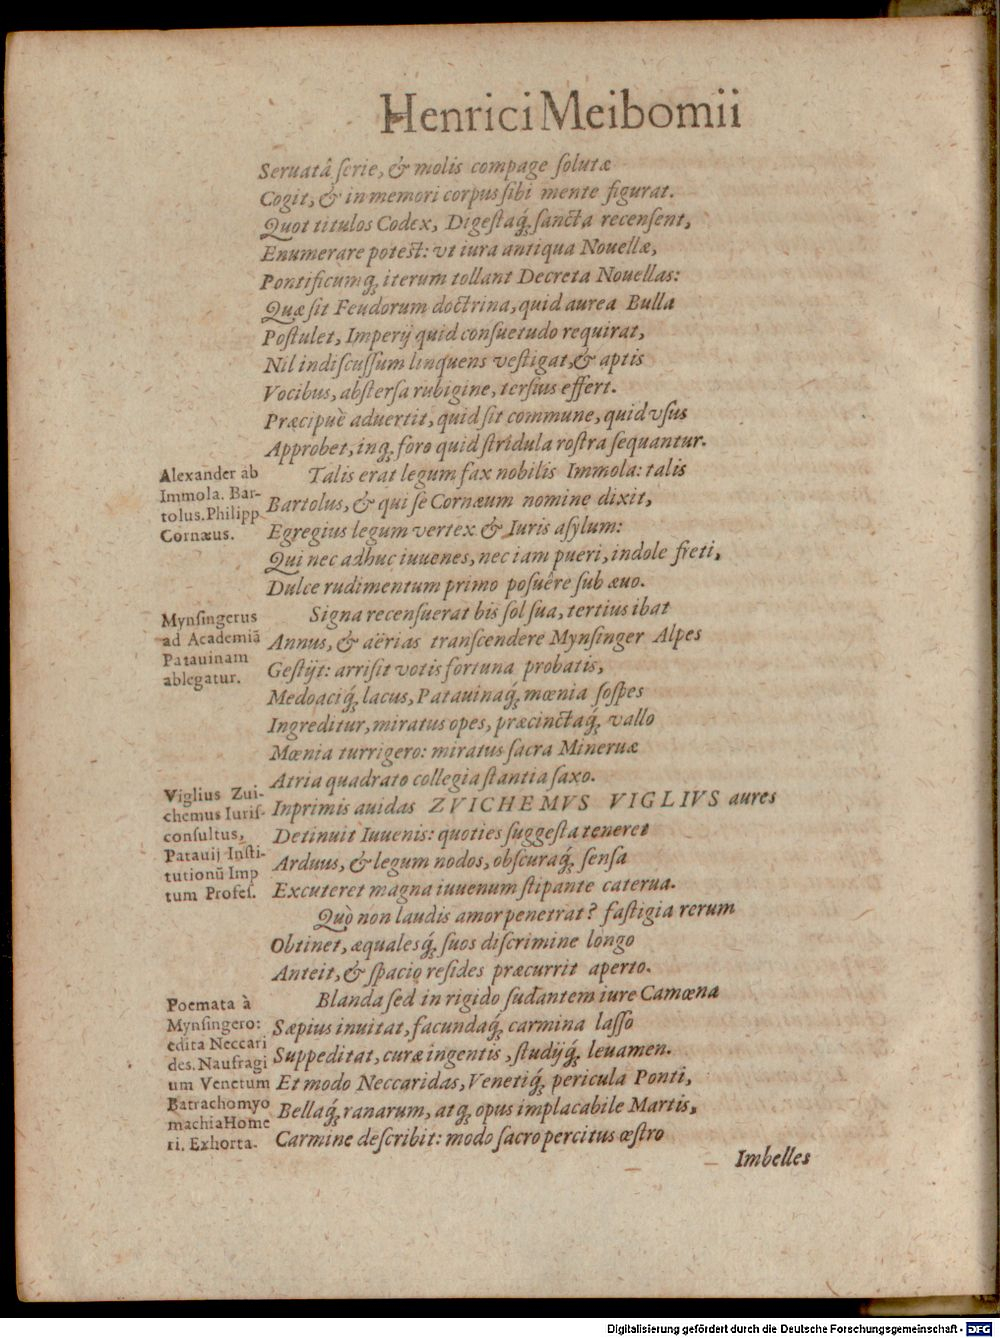 Henrici Meibomii
Seruatâ ſerie, & molis compage ſolutæ
Cogit, & in memori corpus ſibi mente figurat.
Quot titulos Codex, Digeſtaq́; ſancta recenſent,
Enumerare poteſt: vt iura antiqua Nouellæ,
Pontificumq́; iterum tollant Decreta Nouellas:
Quæ ſit Feudorum doctrina, quid aurea Bulla
Poſtulet, Imperij quid conſuetudo requirat,
Nil indiſcuſſum linquens veſtigat, & aptis
Vocibus, abſterſa rubigine, terſius effert.
Præcipuè aduertit, quid ſit commune, quid vſus
Approbet, inq́; foro quid ſtridula roſtra ſequantur.
Alexander ab
Immola. Bar-
tolus. Philipp
Cornæus.
Talis erat legum fax nobilis Immola: talis
Bartolus, & qui ſe Cornæum nomine dixit,
Egregius legum vertex & Iuris aſylum:
Qui nec adhuc iuuenes, nec iam pueri, indole freti,
Dulce rudimentum primo poſuêre ſub æuo.
Mynſingerus
ad Academiã
Patauinam
ablegatur.
Signa recenſuerat bis ſol ſua, tertius ibat
Annus, & aërias tranſcendere Mynſinger Alpes
Geſtijt: arriſit votis fortuna probatis,
Medoaciq́; lacus, Patauinaq́; mœnia ſoſpes
Ingreditur, miratus opes, præcinctaq́; vallo
Mœnia turrigero: miratus ſacra Mineruæ
Atria quadrato collegia ſtantia ſaxo.
Viglius Zui-
chemus Iuriſ-
conſultus,
Patauij Inſti-
tutionũ Imp
tum Profeſ.
Inprimis auidas ZVICHEMVS VIGLIVS aures
Detinuit Iuuenis: quoties ſuggeſta teneret
Arduus, & legum nodos, obſcuraq́; ſenſa
Excuteret magna iuuenum ſtipante caterua.
Quò non laudis amor penetrat? faſtigia rerum
Obtinet, æqualesq́; ſuos diſcrimine longo
Anteit, & ſpacio reſides præcurrit aperto.
Poemata à
Mynſingero:
edita Neccari
des. Naufragi
um Venetum
Batrachomyo
machia Home
ri. Exhorta.
Blanda ſed in rigido ſudantem iure Camœna
Sæpius inuitat, facundaq́; carmina laſſo
Suppeditat, curæ ingentis, ſtudijq́; leuamen.
Et modo Neccaridas, Venetiq́; pericula Ponti,
Bellaq́; ranarum, atq́; opus implacabile Martis,
Carmine deſcribit: modo ſacro percitus œſtro
Imbelles
Digitalisierung gefördert durch die Deutsche Forschungsgemeinschaft - DFG